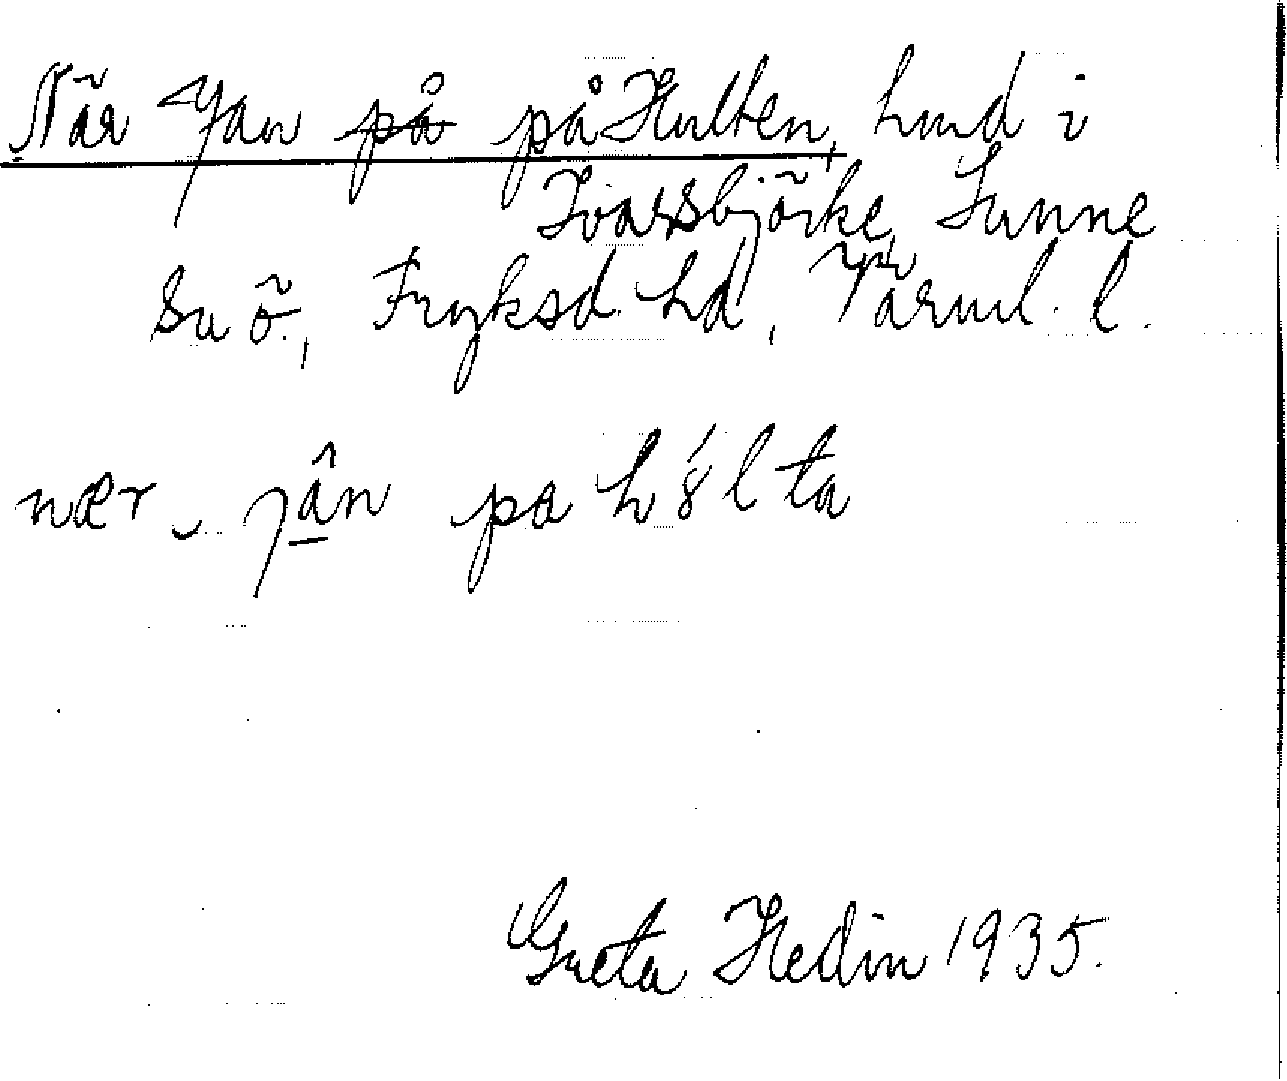 När Jan på på Hulten, hmd i
Ivarsbjörke, Sunne
sn ö., Fryksd. hd, Värml. l.
nær jân pa hó̤lta
Greta Hedin 1935.